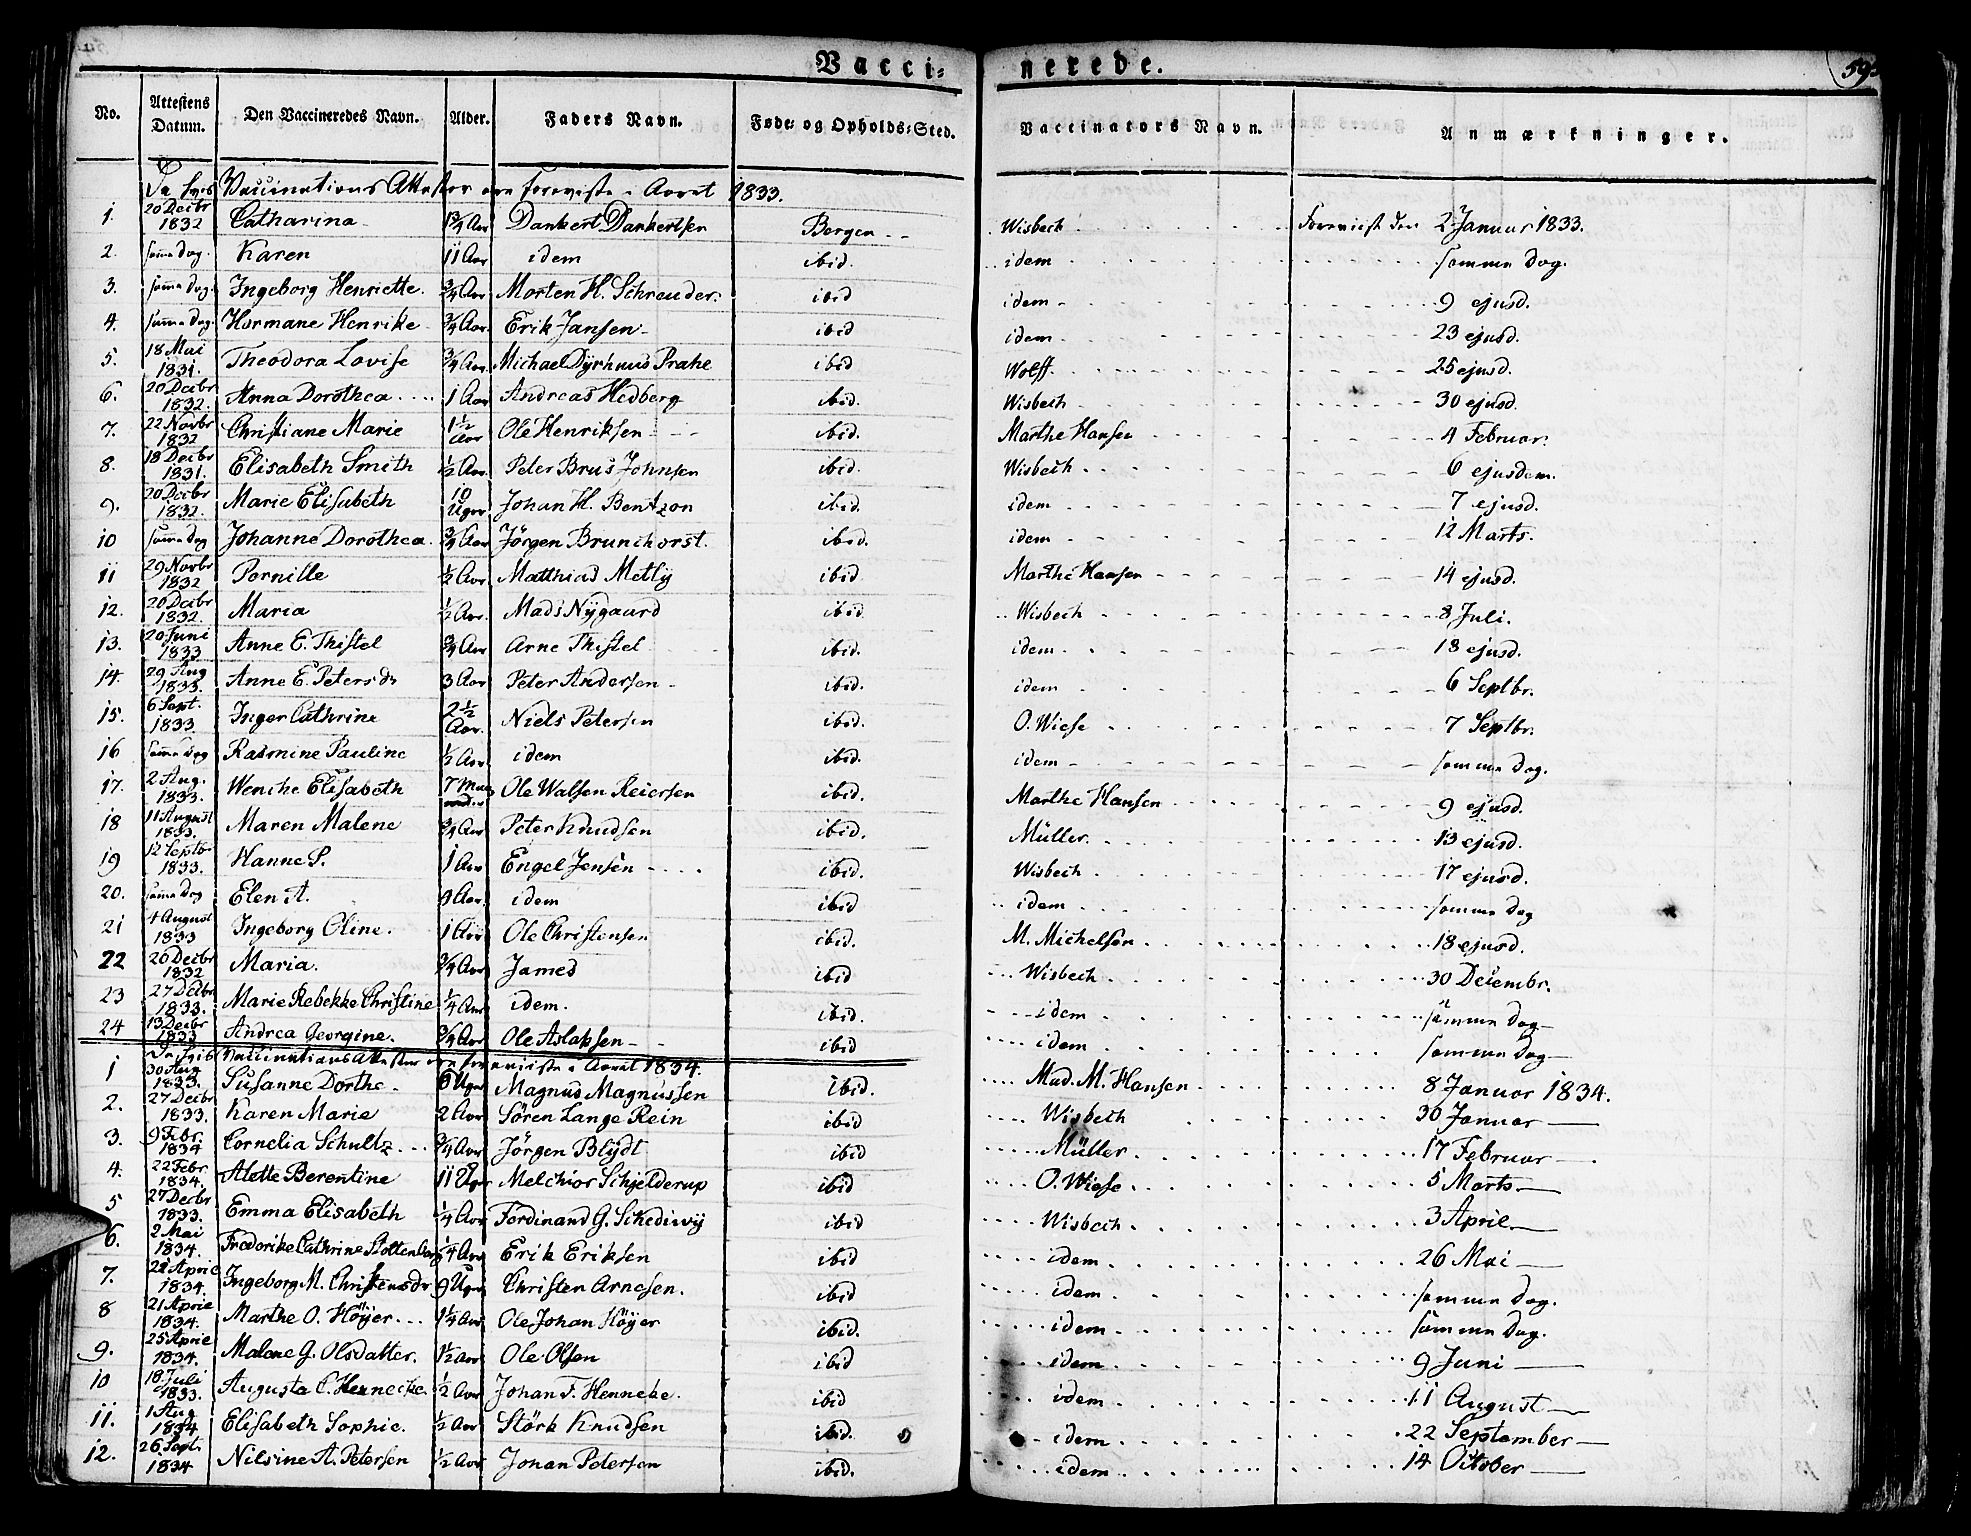 Vacci= nerede. 59
No. Attestens Datum. Den Vaccineredes Navn. Alder. Faders Navn. Føde= og Opholds=Sted. Vaccinators Navn. Anmærkninger.
Vaccinations Attester ere foreviste i Aaret 1833.
1. 20 Decbr 1832 Catharina 1¾ Aar Dankert Dankertsen Bergen Wisbech Foreviist den 2 Januar 1833.
2. samme Dag. Karen 11 Aar idem ibid. idem samme Dag.
3. samme Dag. Ingeborg Henriette. ¾ Aar Morten H. Schreuder. ibid idem 9 ejusd.
4. samme Dag. Hermane Henrike ¾ Aar. Erik Jansen ibid idem 23 ejusd.
5. 18 Mai 1831. Theodora Lovise ¾ Aar. Michael Dyrhuus Prahe ibid Wolff. 25 ejusd.
6. 20 Decbr 1832. Anna Dorothea 1 Aar Andreas Hedberg ibid. Wisbech 30 ejusd.
7. 22 Novbr 1832 Christiane Marie 1½ Aar Ole Henriksen ibid. Marthe Hansen 4 Februar.
8. 18 Decbr 1831. Elisabeth Smith ½ Aar. Peter Brus Johnsen ibid. Wisbech 6 ejusdem.
9. 20 Decbr 1832. Marie Elisabeth 10 Uger Johan H. Bentzon ibid. idem 7 ejusd.
10 samme Dag Johanne Dorothea. ¾ Aar Jörgen Brunchorst. ibid. idem 12 Marts.
11 29 Novbr 1832 Pernille ½ Aar. Matthias Metly ibid Marthe Hansen 14 ejusd.
12. 20 Decbr 1832. Maria ½ Aar. Mads Nygaard ibid Wisbech 8 Juli.
13. 20 Juni 1833 Anne E. Thistel ¾ Aar Arne Thistel ibid. idem 18 ejusd.
14. 29 Aug 1833. Anne E. Petersdr 3 Aar Peter Andersen ibid. idem 6 Septbr.
15. 6 Sept. 1833. Inger Cathrine 2½ Aar. Niels Petersen ibid. O. Wiese 7 Septbr.
16 samme Dag Rasmine Pauline ½ Aar. idem ibid. idem samme Dag.
17. 2 Aug. 1833. Wenche Elisabeth 7 Ole Walsen Reiersen ibid. Marthe Hansen 9 ejusd.
18 11 August 1833. Maren Malene ¾ Aar Peter Knudsen ibid. Müller. 13 ejusd.
19 12 Septbr 1833. Hanne P. 1 Aar Engel Jensen ibid. Wisbech 17 ejusd.
20. samme Dag Elen A. 9 Aar. idem ibid idem samme Dag
21 4 August 1833 Ingeborg Oline. 1 Aar Ole Christensen ibid. M. Michelsen 18 ejusd.
22 20 Decbr 1832 Maria. ¾ Aar James ibid Wisbech 30 Decembr.
23 27 Decbr 1833. Marie Rebekke Christine ¼ Aar idem. ibid. idem samme Dag
24 13 Decbr 1833 Andrea Georgine. ¾ Aar Ole Aslaksen ibid idem samme Dag
Vaccinations Attester ere foreviiste i Aaret 1834.
1 30 Aug 1833. Susanne Dorthe 6 Uger Magnus Magnussen ibid. Mad. M. Hansen 8 Januar 1834.
2. 27 Decbr 1833. Karen Marie 2 Aar Sören Lange Rein ibid Wisbech 30 Januar
3. 9 Febr. 1834 Cornelia Schultz ¾ Aar Jörgen Blydt ibid Müller 17 Februar
4. 22 Febr. 1834. Alette Berentine 11 Uger Melchior Schjelderup ibid O. Wiese 5 Marts
5 27 Decbr 1833. Emma Elisabeth ¼ Aar Ferdinand G. Schediwy ibid Wisbech 3 April
6. 2 Mai 1834. Frederike Cathrine Stoltenberg ¼ Aar Erik Eriksen ibid idem 26 Mai
7. 22 April 1834. Ingeborg M. Christensdr 9 Uger Christen Arnesen. ibid idem samme Dag.
8 21 April 1834. Marthe O. Höyer 1¼ Aar Ole Johan Höyer ibid. idem samme Dag.
9. 25 April 1834. Malene G. Olsdatter. 1½ Aar Ole Olsen ibid idem 9 Juni
10 18 Juli 1833. Augusta C. Henneche. ½ Aar Johan F. Henneke. ibid idem 11 August
11. 1 Aug 1834 Elisabeth Sophie. ½ Aar Störk Knudsen ibid. idem 22 September
12. 26 Sept. 1834 Nilsine A. Petersen ½ Aar Johan Petersen ibid. idem 14 October